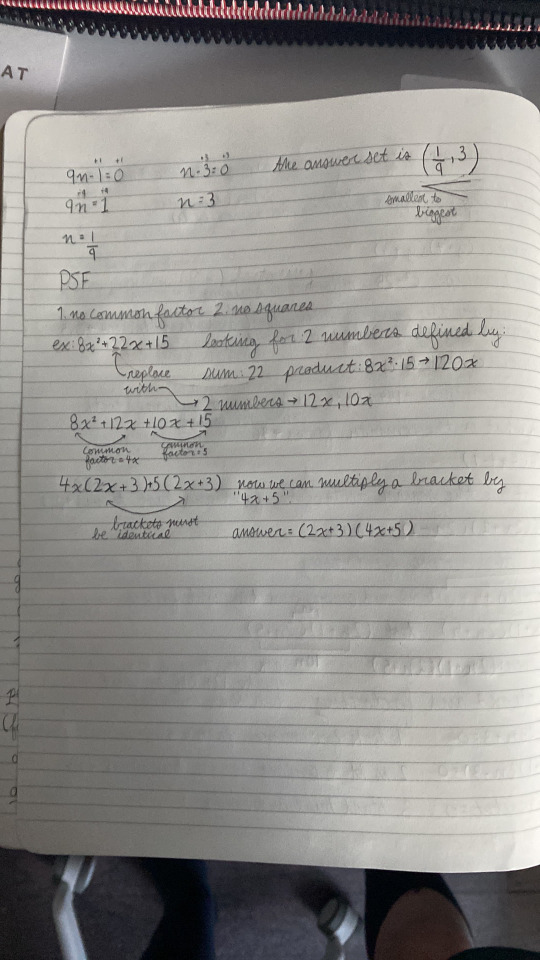 AT
+1 +1
9n-1=0
+3 +3
n-3=0
the answer set is (1/9, 3)
9n=1
n=3
smallest to
biggest
n=1/9
PSF
1. no common factor 2. no squares
ex: 8x²+22x+15 looking for 2 numbers defined by:
replace
with
sum: 22 product: 8x²·15→120x
2 numbers → 12x, 10x
8x²+12x+10x+15
common
factor=4x
common
factor=5
4x(2x+3)+5(2x+3) now we can multiply a bracket by
"4x+5"
brackets must
be identical
answer=(2x+3)(4x+5)